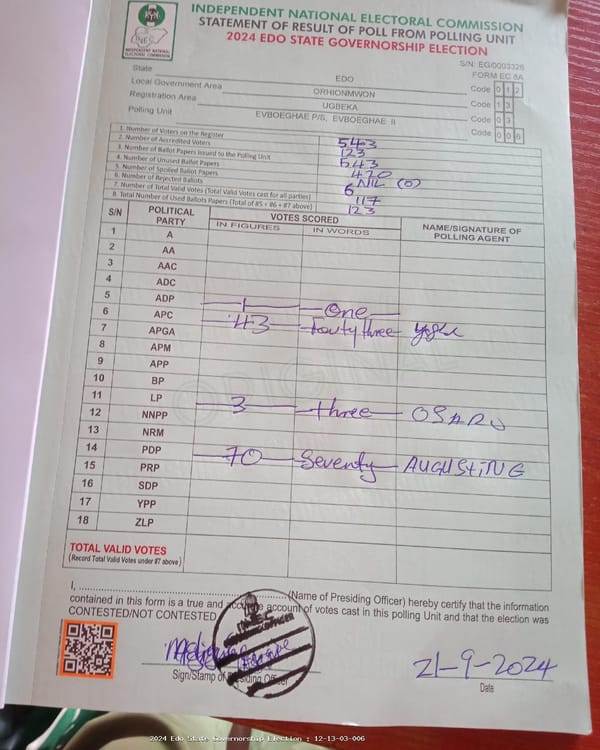 INDEPENDENT NATIONAL ELECTORAL COMMISSION
STATEMENT OF RESULT OF POLL FROM POLLING UNIT
2024 EDO STATE GOVERNORSHIP ELECTION
INEC
INDEPENDENT NATIONAL ELECTORAL COMMISSION
S/N: EG/0003326
FORM EC 8A
State EDO Code 0 1 2
Local Government Area ORHIONMWON Code 1 3
Registration Area UGBEKA Code 0 3
Polling Unit EVBOEGHAE P/S, EVBOEGHAE II Code 0 0 6
1. Number of Voters on the Register 543
2. Number of Accredited Voters 123
3. Number of Ballot Papers Issued to the Polling Unit 543
4. Number of Unused Ballot Papers 420
5. Number of Spoiled Ballot Papers NIL (0)
6. Number of Rejected Ballots 6
7. Number of Total Valid Votes (Total Valid Votes cast for all parties) 117
8. Total Number of Used Ballots Papers (Total of #5 + #6 + #7 above) 123
S/N POLITICAL PARTY VOTES SCORED NAME/SIGNATURE OF POLLING AGENT
IN FIGURES IN WORDS
1 A
2 AA
3 AAC
4 ADC
5 ADP 1 One
6 APC 43 Fourty three
7 APGA
8 APM
9 APP
10 BP
11 LP 3 three OSARU
12 NNPP
13 NRM
14 PDP 70 Seventy AUGUSTINE
15 PRP
16 SDP
17 YPP
18 ZLP
ORIGINAL
TOTAL VALID VOTES
(Record Total Valid Votes under #7 above)
I, (Name of Presiding Officer) hereby certify that the information
contained in this form is a true and accurate account of votes cast in this polling Unit and that the election was
CONTESTED/NOT CONTESTED
INEC
21-9-2024
Sign/Stamp of Presiding Officer
Date
2024 Edo State Governorship Election : 12-13-03-006